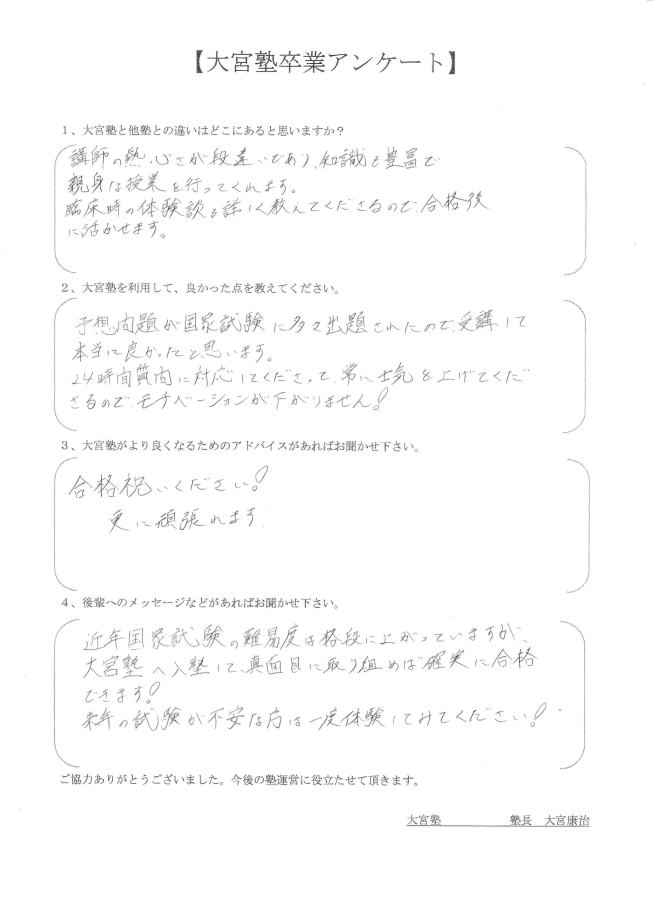 【大宮塾卒業アンケート】
1、大宮塾と他塾との違いはどこにあると思いますか？
講師の熱心さが段違いであり、知識も豊富で
親身な授業を行ってくれます。
臨床時の体験談も詳しく教えてくださるので、合格後
に活かせます。
2、大宮塾を利用して、良かった点を教えてください。
予想問題が国家試験に多々出題されたので、受講して
本当に良かったと思います。
24時間質問に対応してくださって、常に士気を上げてくだ
さるので、モチベーションが下がりません!
3、大宮塾がより良くなるためのアドバイスがあればお聞かせ下さい。
合格祝いください!
更に頑張れます.
4、後輩へのメッセージなどがあればお聞かせ下さい。
近年国家試験の難易度は格段に上がっていますが、
大宮塾へ入塾して、真面目に取り組めば確実に合格
できます!
来年の試験が不安な方は一度体験してみてください!
ご協力ありがとうございました。今後の塾運営に役立たせて頂きます。
大宮塾 塾長 大宮康治